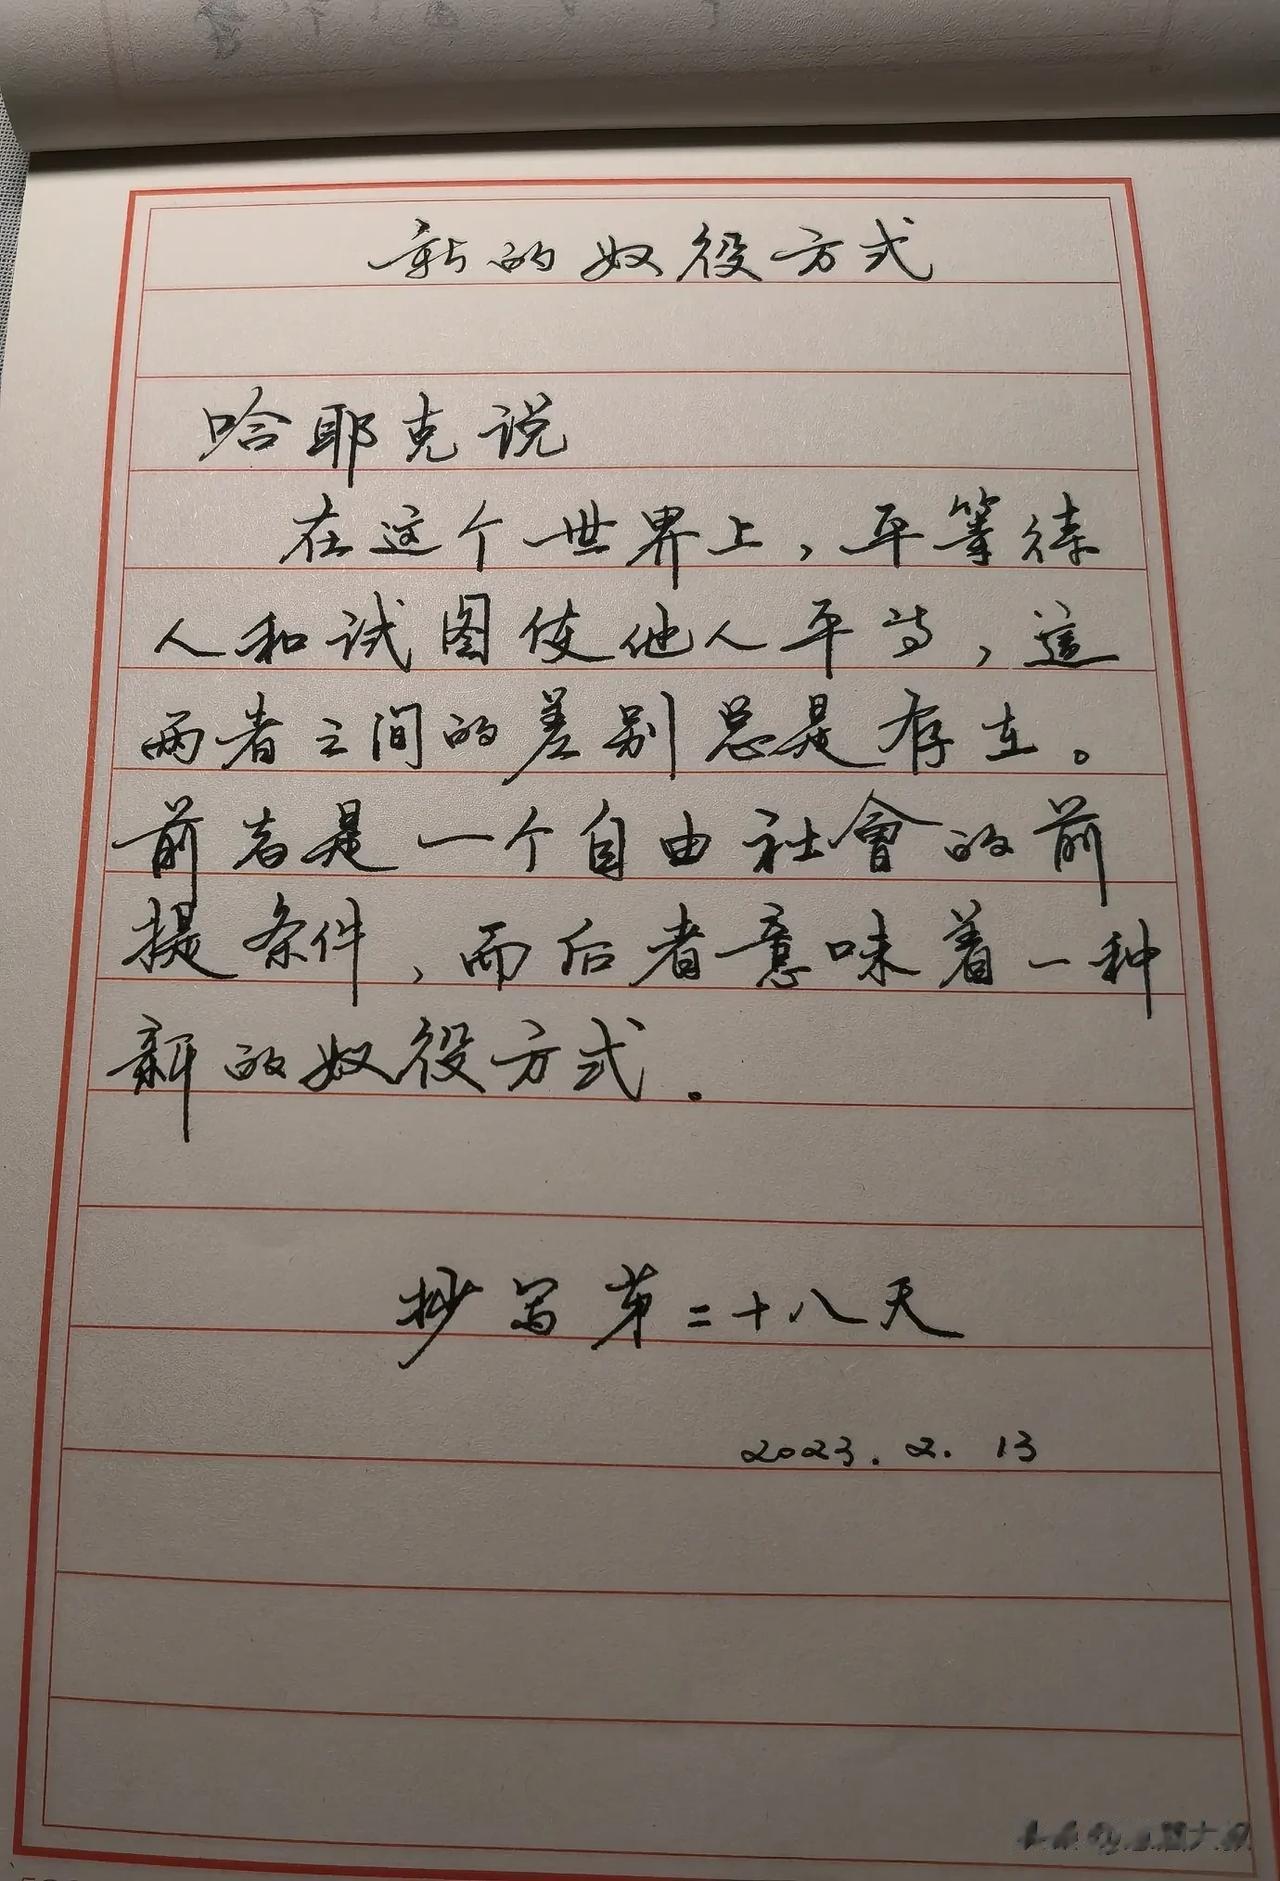 新的奴役方式
哈耶克说
在这个世界上，平等待
人和试图使他人平等，這
两者之间的差别总是存在。
前者是一个自由社會的前
提条件，而后者意味着一种
新的奴役方式。
抄写第二十八天
2023.2.13